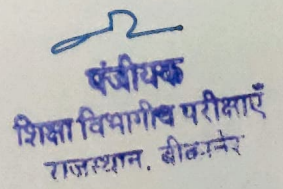 पंजीयक
शिक्षा विभागीय परीक्षाएँ
राजस्थान, बीकानेर